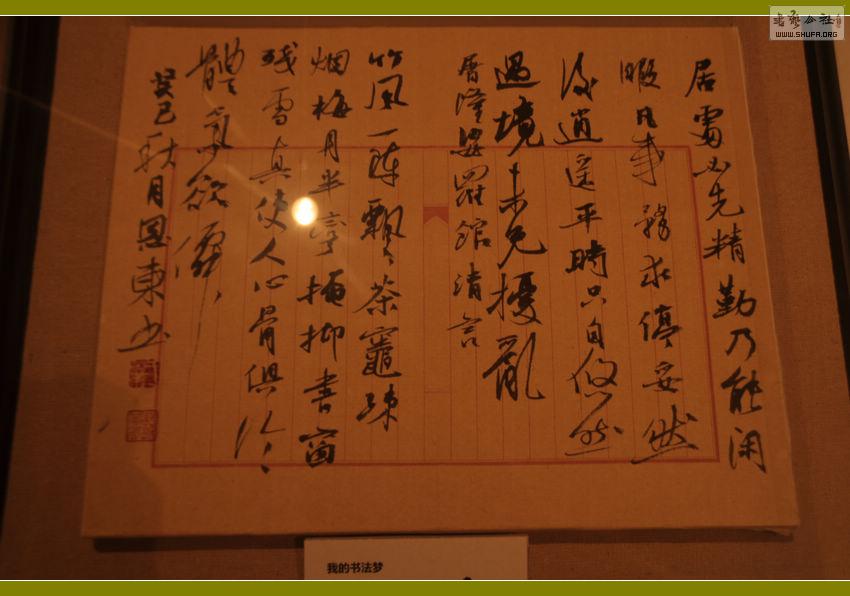 居處必先精勤乃能闲
暇凡事務求停妥然
後逍遥平時只自悠然
遇境未免擾亂
屠隆娑羅館清言
竹風一陣飄飄茶竈疎
烟梅月半彎掩抑書窗
残雪真使人心骨俱冷
體氣欲僊
癸巳秋月恩東书
我的书法梦
书法公社
WWW.SHUFA.ORG